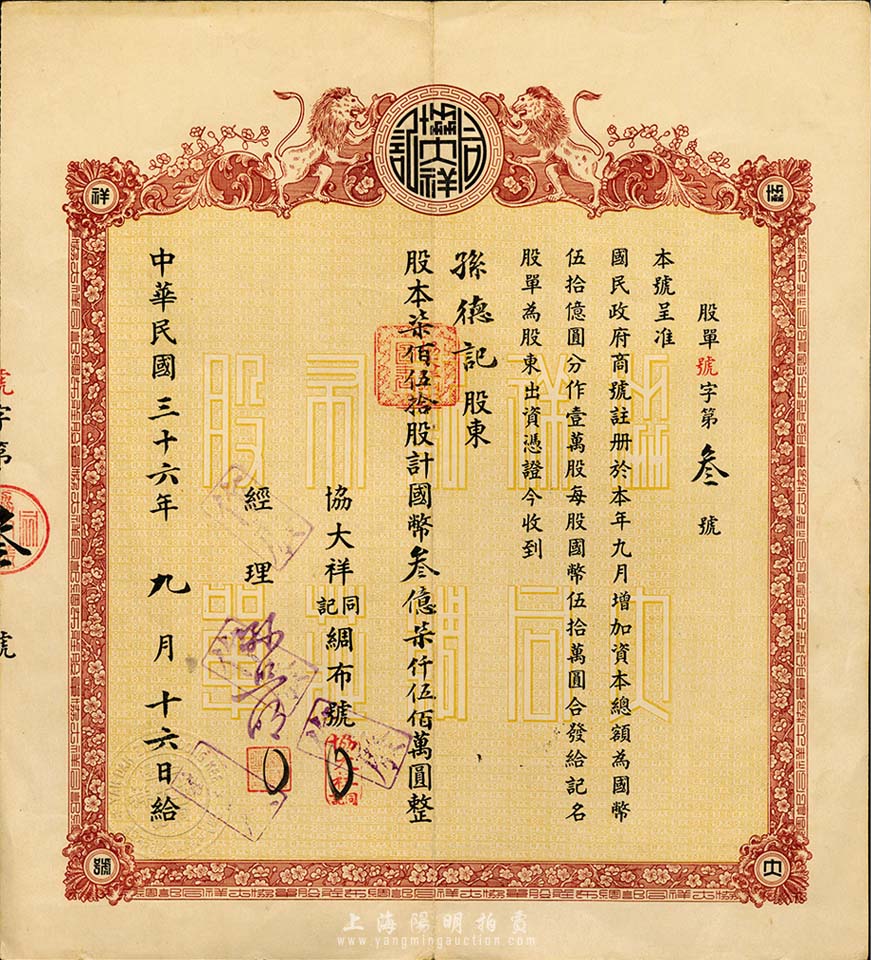 協大祥同記
協
祥
大
號
股單號字第叁號
本號呈准
國民政府商號註册於本年九月增加資本總額為國幣
伍拾億圓分作壹萬股每股國幣伍拾萬圓合發給記名
股單為股東出資憑證今收到
孫德記股東
股本柒佰伍拾股計國幣叁億柒仟伍佰萬圓整
協大祥同記綢布號
經理
中華民國三十六年九月十六日給
號字第叁號
協大祥同記綢布號股單
上海陽明拍賣
www.yangmingauction.com